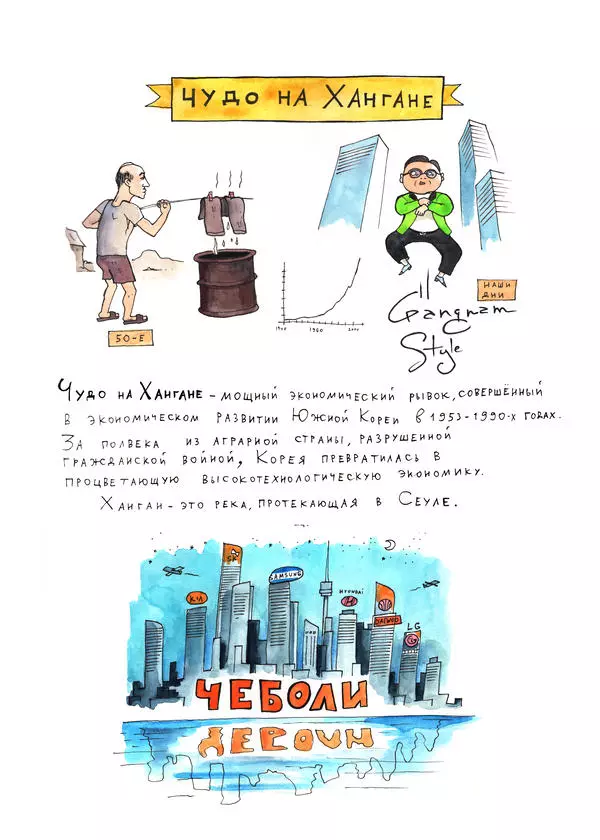 ЧУДО НА ХАНГАНЕ
50-Е
1900 1960 2000
НАШИ
ДНИ
"Gangnam
Style
ЧУДО НА ХАНГАНЕ - МОЩНЫЙ ЭКОНОМИЧЕСКИЙ РЫВОК, СОВЕРШЁННЫЙ
В ЭКОНОМИЧЕСКОМ РАЗВИТИИ ЮЖНОЙ КОРЕИ В 1953-1990-Х ГОДАХ.
ЗА ПОЛВЕКА ИЗ АГРАРНОЙ СТРАНЫ, РАЗРУШЕННОЙ
ГРАЖДАНСКОЙ ВОЙНОЙ, КОРЕЯ ПРЕВРАТИЛАСЬ В
ПРОЦВЕТАЮЩУЮ ВЫСОКОТЕХНОЛОГИЧЕСКУЮ ЭКОНОМИКУ.
ХАНГАН - ЭТО РЕКА, ПРОТЕКАЮЩАЯ В СЕУЛЕ.
SK
SAMSUNG
KIA
HYUNDAI
DAEWOO
LG
ЧЕБОЛИ